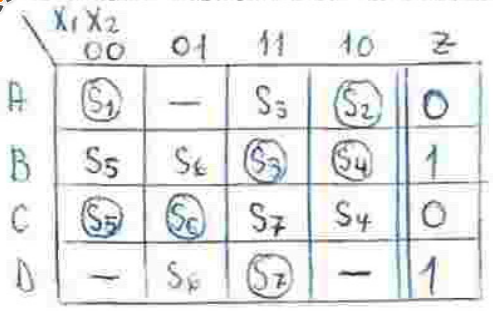 X1 X2
00 01 11 10 Z
A S1 — S3 S2 0
B S5 S6 S3 S4 1
C S5 S6 S7 S4 0
D — S6 S7 — 1